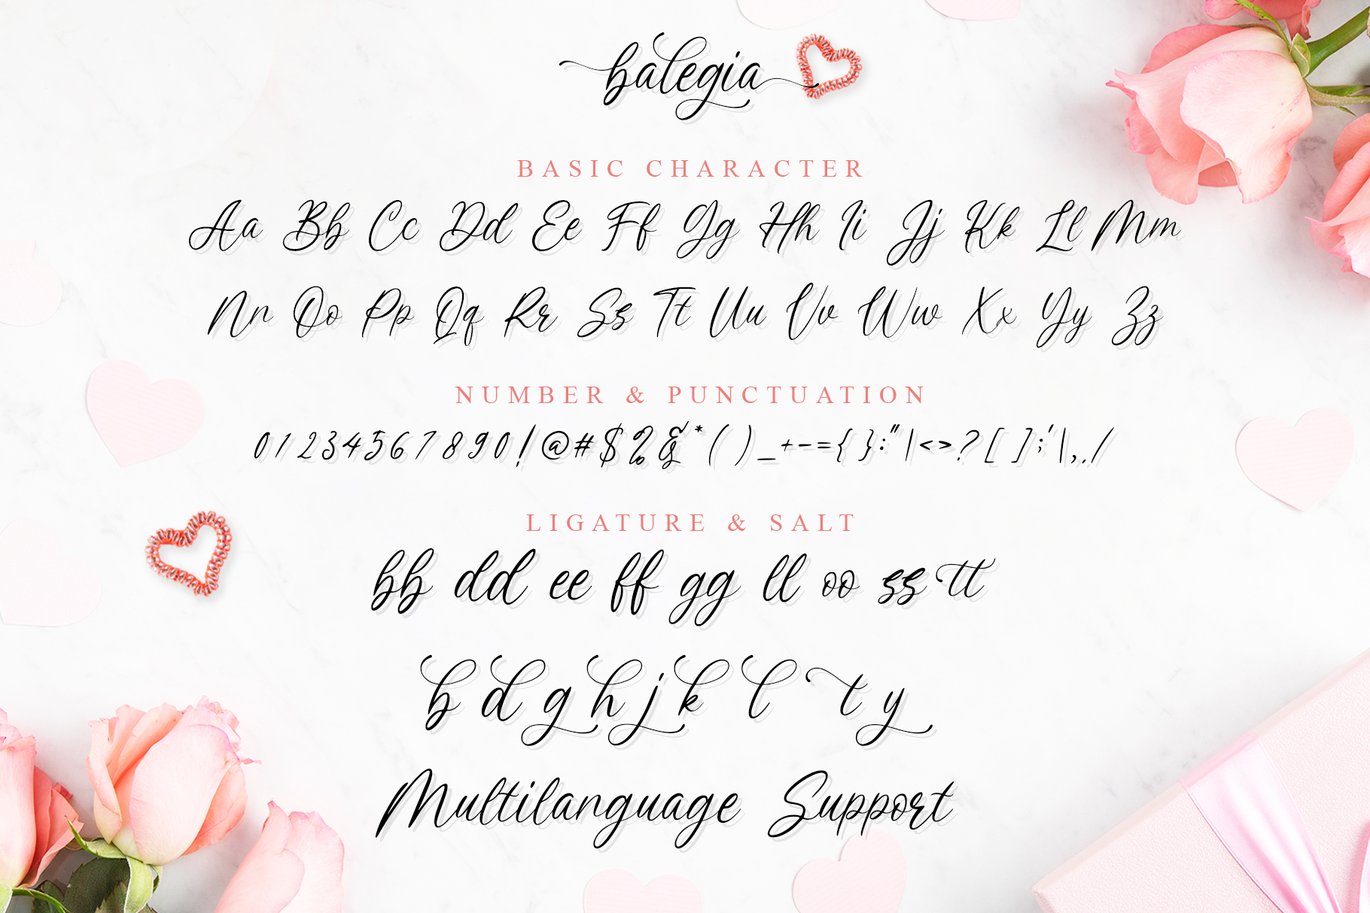 balegia
BASIC CHARACTER
Aa Bb Cc Dd Ee Ff Gg Hh Ii Jj Kk Ll Mm
Nn Oo Pp Qq Rr Ss Tt Uu Vv Ww Xx Yy Zz
NUMBER & PUNCTUATION
01234567890!@#$%&~*()_+-={}:"|<>?[];'\,./
LIGATURE & SALT
bb dd ee ff gg ll oo ss tt
b d g h j k l t y
Multilanguage Support